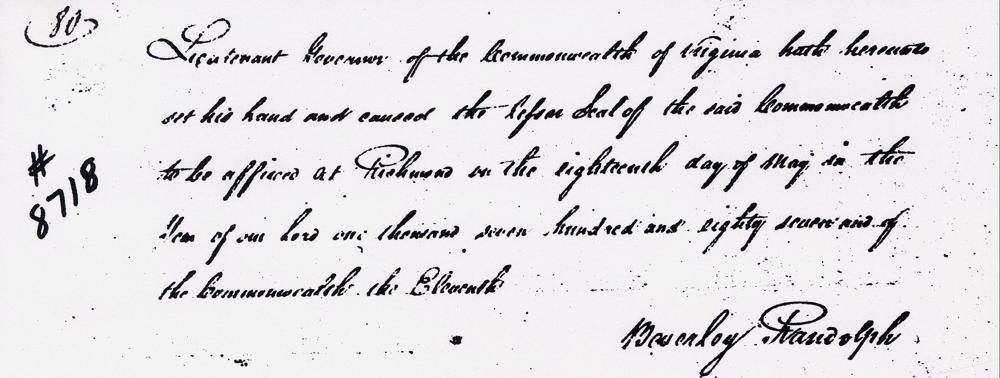 80
Lieutenant Governor of the Commonwealth of Virginia hath hereunto
set his hand and caused the lesser Seal of the said Commonwealth
to be affixed at Richmond on the eighteenth day of May in the
Year of our Lord one thousand seven hundred and eighty seven and of
the Commonwealth the Eleventh
Beverley Randolph
# 8718